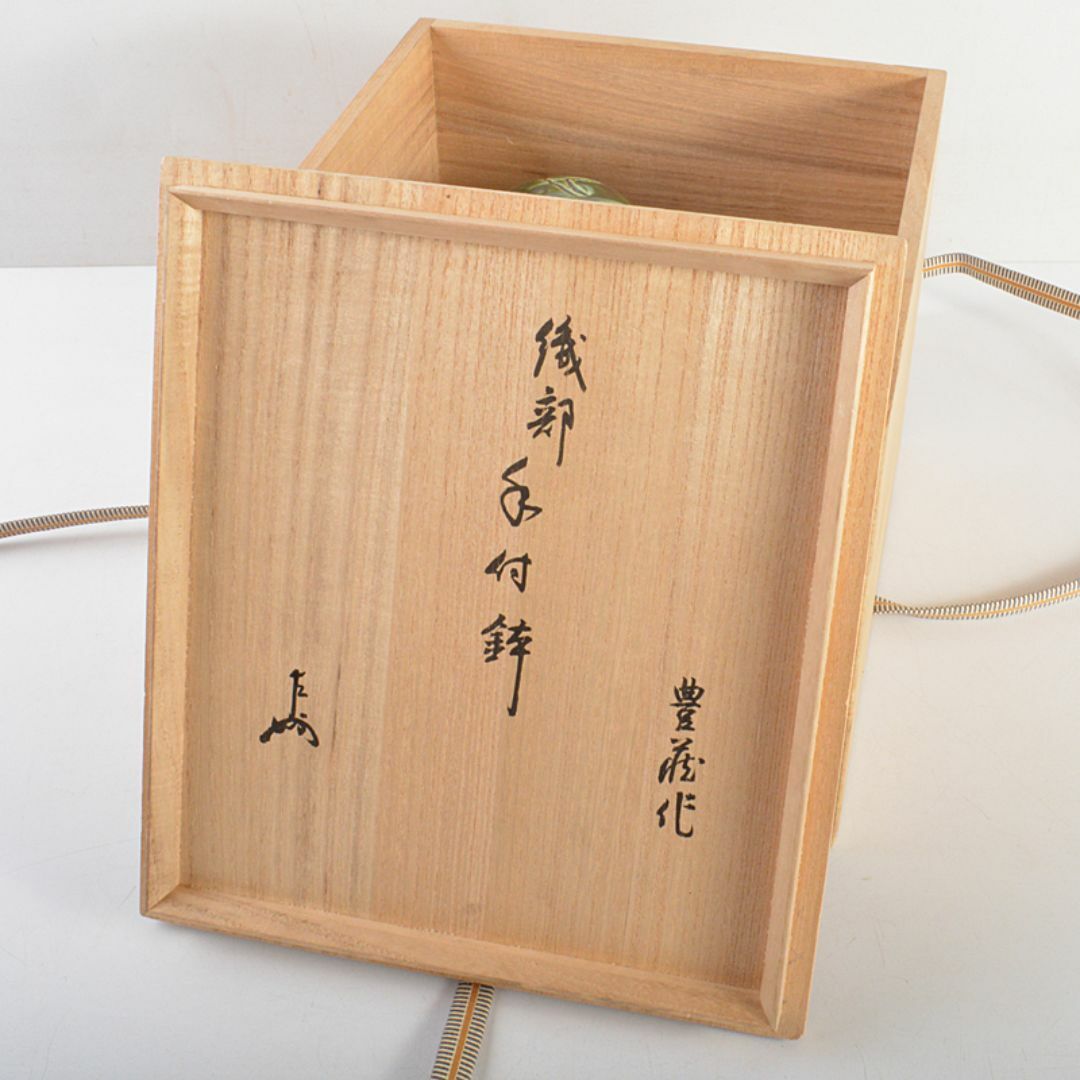 豊蔵作
織部手付鉢